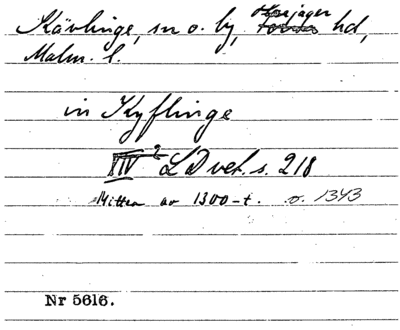 Kävlinge, sn o. by, Harjager hd,
Malm. l.
in Kyflinge
XIV 2 LDvet. s. 218
Mitten av 1300-t. o. 1343
Nr 5616.